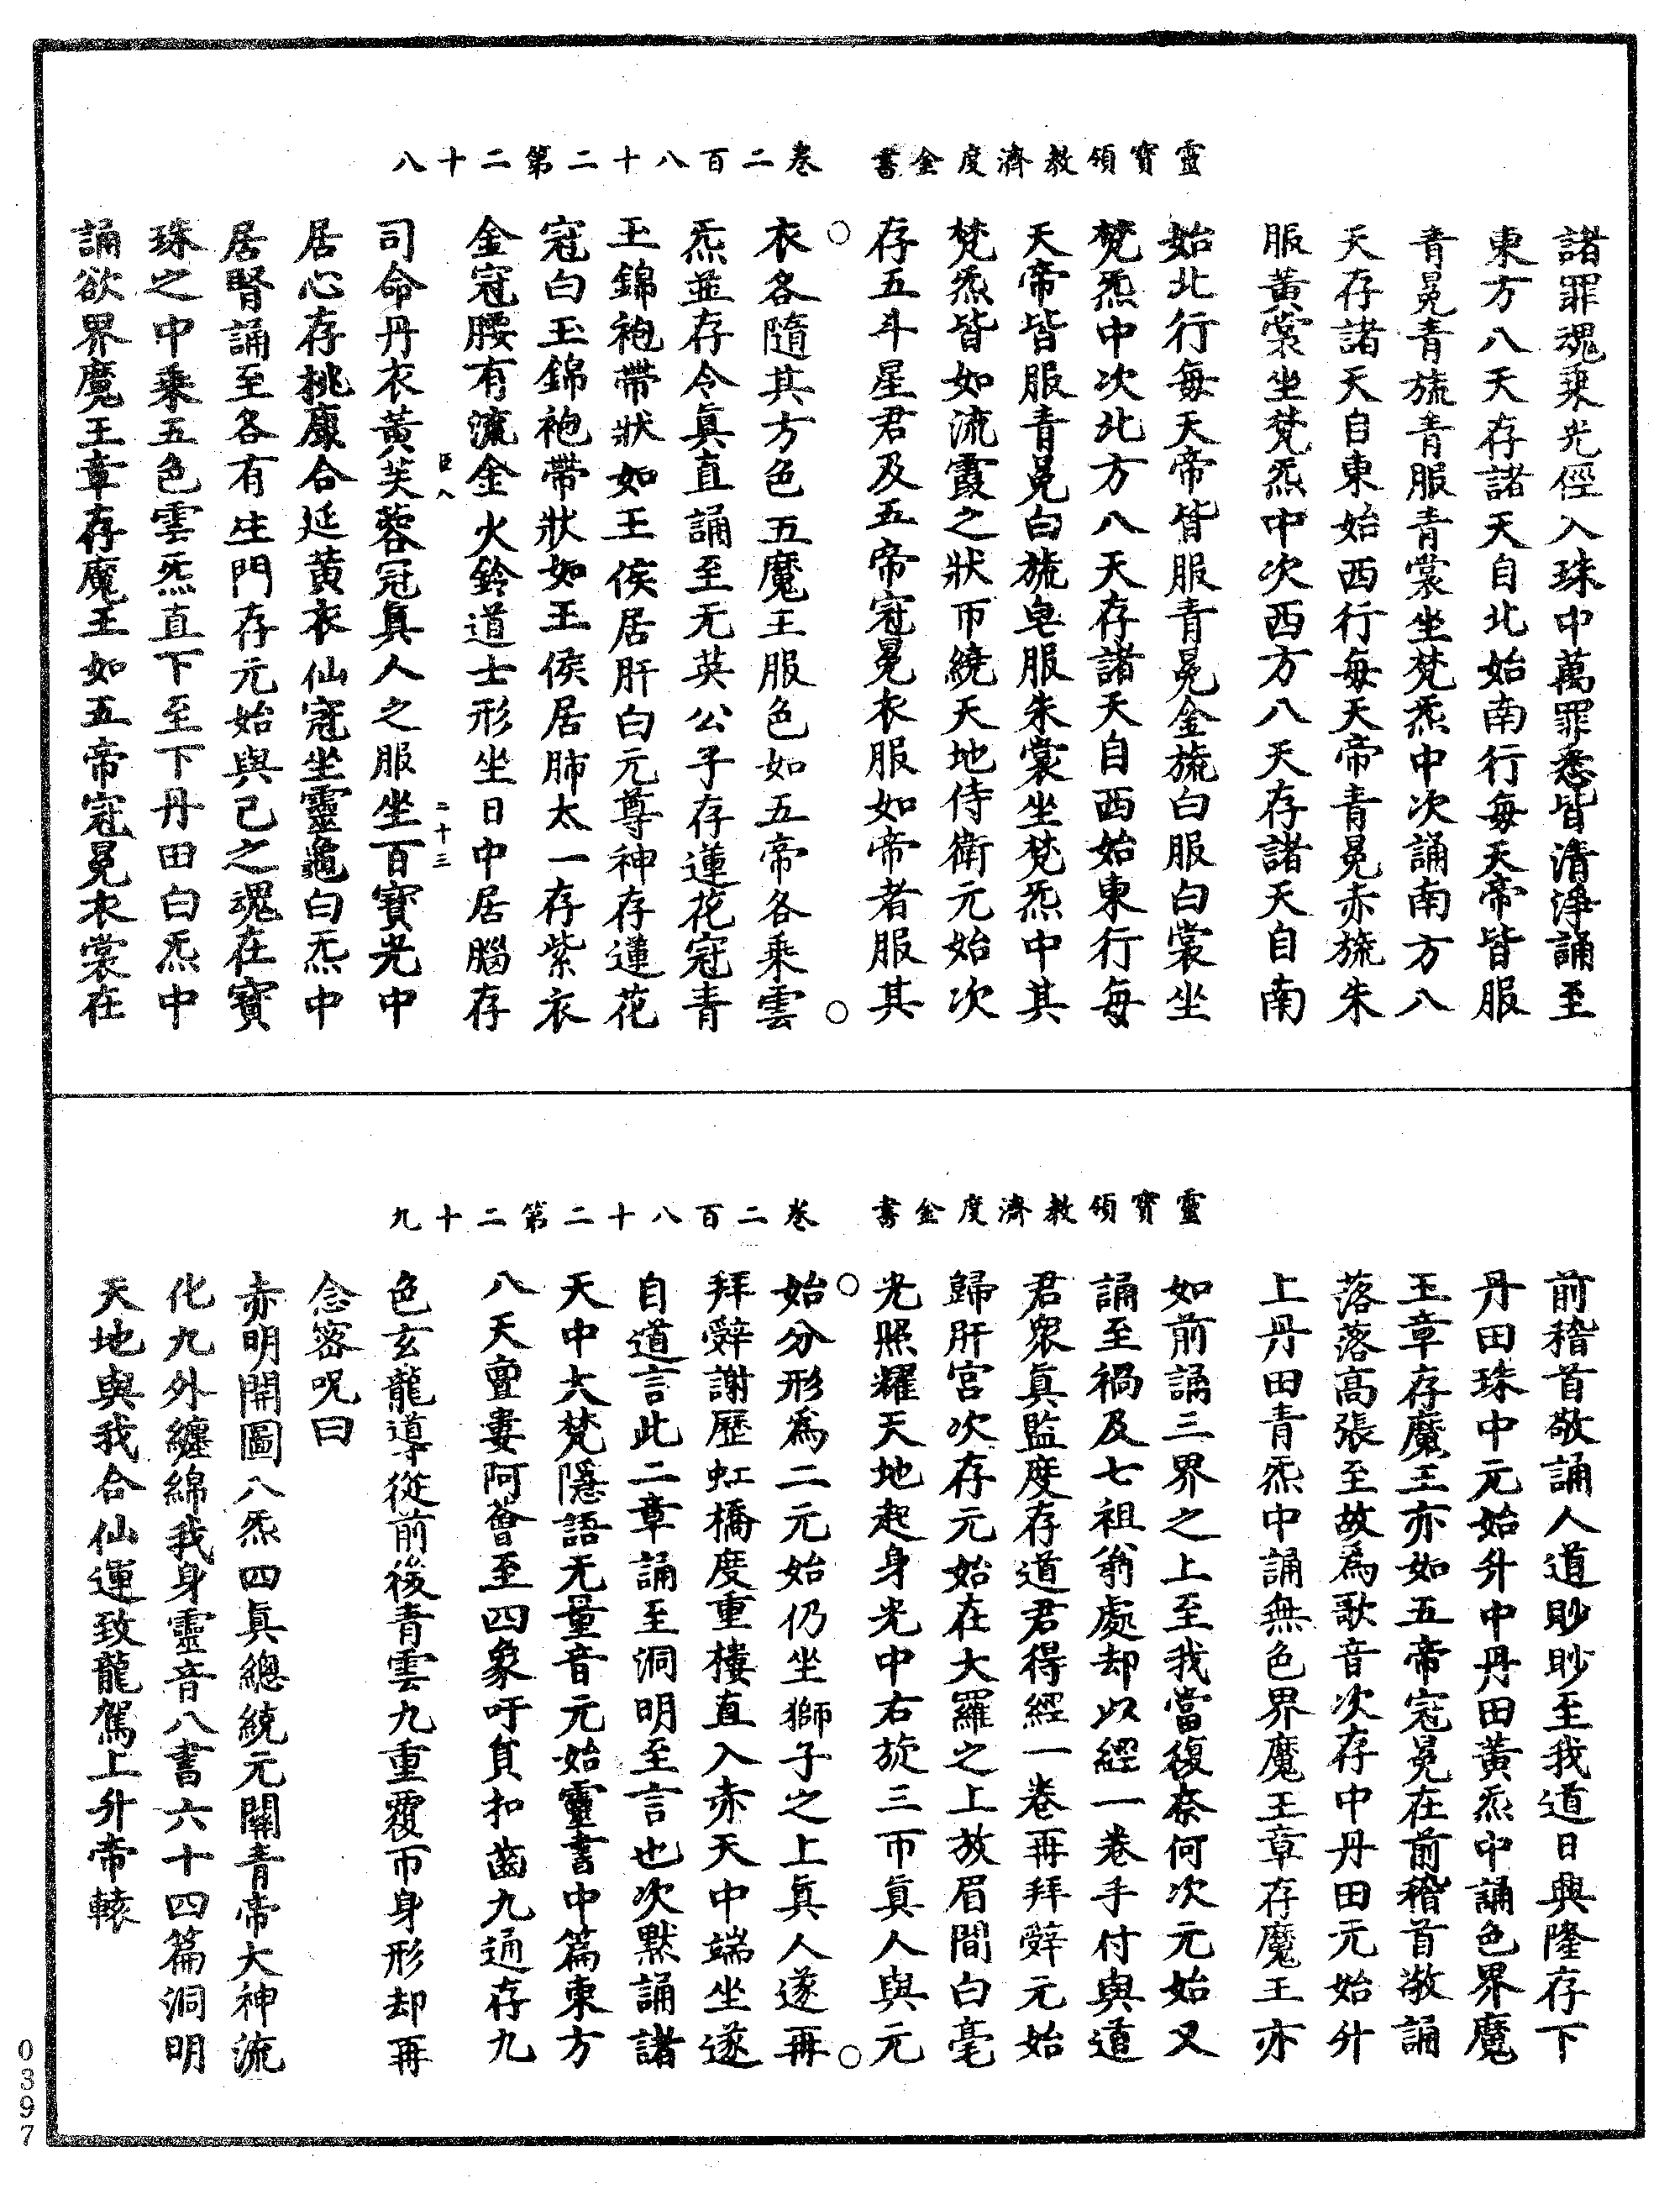 靈寶領教濟度金書　卷二百八十二第二十八
諸罪魂乘光徑入珠中萬罪悉皆清淨誦至
東方八天存諸天自北始南行每天帝皆服
青冕青旒青服青裳坐梵炁中次誦南方八
天存諸天自東始西行每天帝青冕赤旒朱
服黃裳坐梵炁中次西方八天存諸天自南
始北行每天帝皆服青冕金旒白服白裳坐
梵炁中次北方八天存諸天自西始東行每
天帝皆服青冕白旒皂服朱裳坐梵炁中其
梵炁皆如流霞之狀帀繞天地侍衛元始次
存五斗星君及五帝冠冕衣服如帝者服其
衣各隨其方色五魔王服色如五帝各乘雲
炁並存令眞直誦至无英公子存蓮花冠青
玉錦袍帶狀如王侯居肝白元尊神存蓮花
冠白玉錦袍帶狀如王侯居肺太一存紫衣
金冠腰有流金火鈴道士形坐日中居腦存
臣八　二十三
司命丹衣黃芙蓉冠眞人之服坐百寶光中
居心存桃康合延黃衣仙冠坐靈龜白炁中
居腎誦至各有生門存元始與己之魂在寶
珠之中乘五色雲炁直下至下丹田白炁中
誦欲界魔王章存魔王如五帝冠冕衣裳在
靈寶領教濟度金書　卷二百八十二第二十九
前稽首敬誦人道眇眇至我道日興隆存下
丹田珠中元始升中丹田黃炁中誦色界魔
王章存魔王亦如五帝冠冕在前稽首敬誦
落落高張至故爲歌音次存中丹田元始升
上丹田青炁中誦無色界魔王章存魔王亦
如前誦三界之上至我當復奈何次元始又
誦至禍及七祖翁處却以經一卷手付與道
君衆眞監度存道君得經一卷再拜辭元始
歸肝宮次存元始在大羅之上放眉間白毫
光照耀天地起身光中右旋三帀眞人與元
始分形爲二元始仍坐獅子之上眞人遂再
拜辭謝歷虹橋度重樓直入赤天中端坐遂
自道言此二章誦至洞明至言也次默誦諸
天中大梵隱語无量音元始靈書中篇東方
八天亶婁阿薈至四象吁員扣齒九通存九
色玄龍導從前後青雲九重覆帀身形却再
念密呪曰
赤明開圖八炁四眞總統元關青帝大神流
化九外纏綿我身靈音八書六十四篇洞明
天地與我合仙運致龍駕上升帝轅
0397